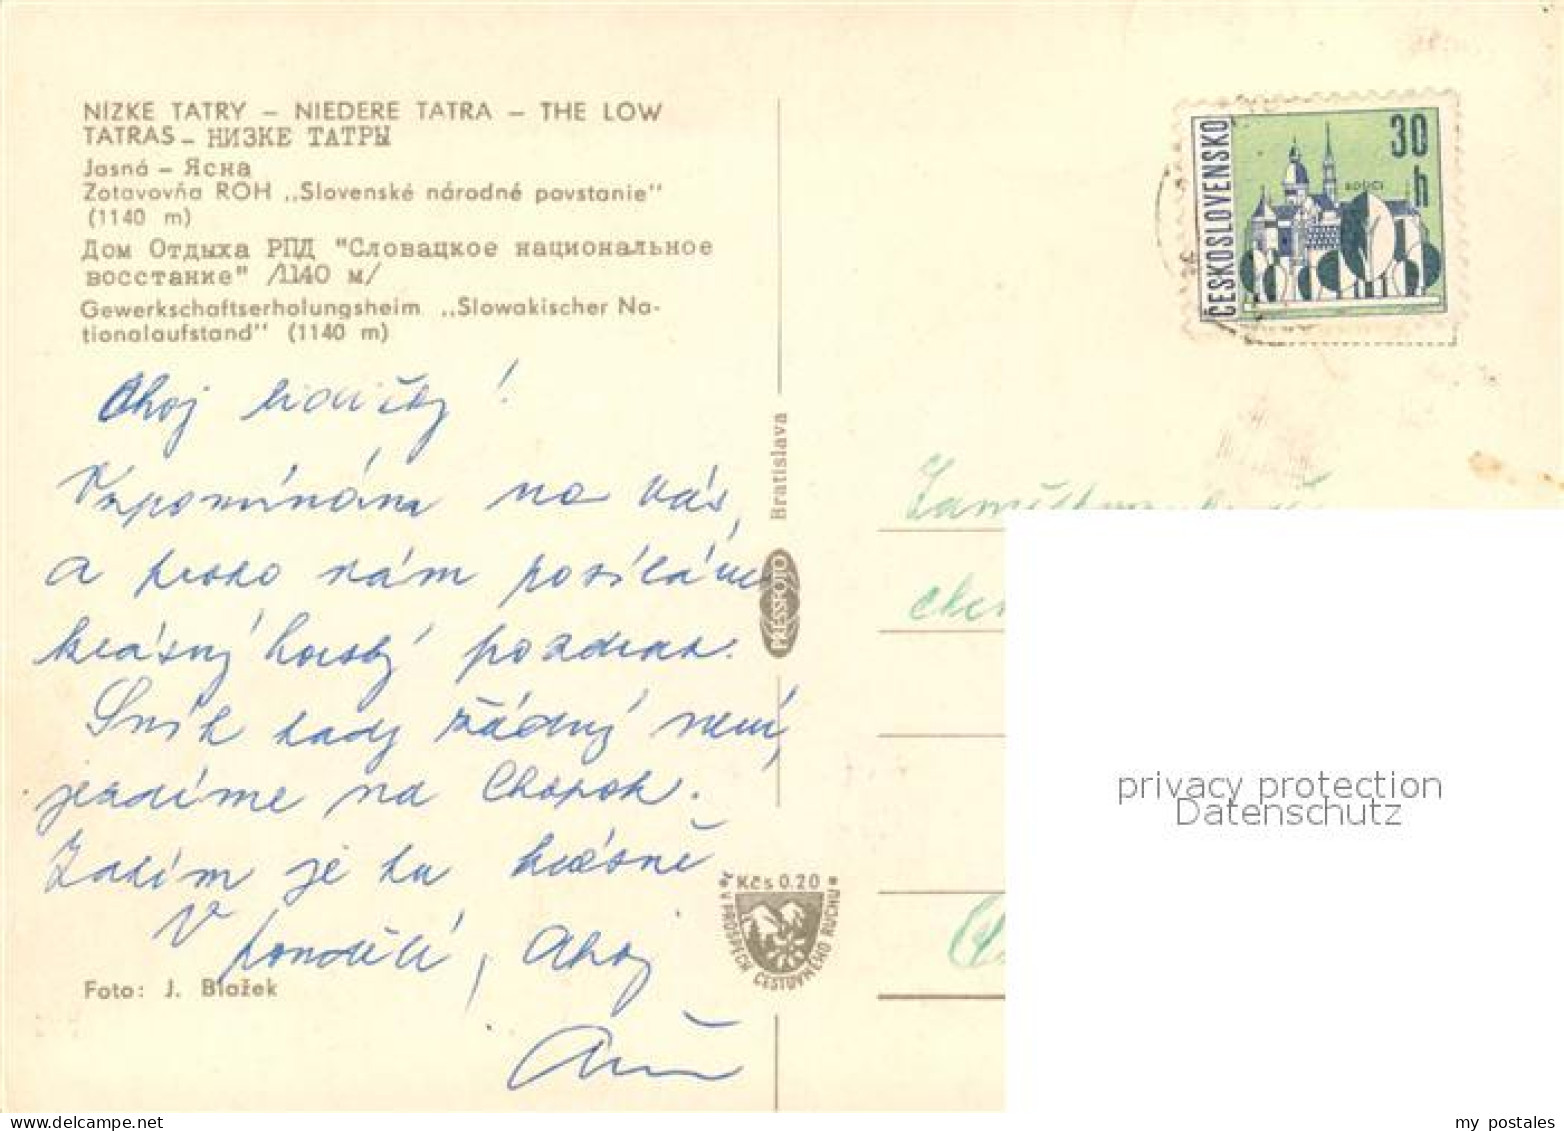 NÍZKE TATRY – NIEDERE TATRA – THE LOW
TATRAS – НИЗКЕ ТАТРЫ
Jasná – Ясна
Zotavovňa ROH „Slovenské národné povstanie"
(1140 m)
Дом Отдыха РПД "Словацкое национальное
восстание" /1140 м/
Gewerkschaftserholungsheim „Slowakischer Na-
tionalaufstand" (1140 m)
Ahoj lidičky!
Vzpomínám na vás,
a proto vám posílám
krásný horský pozdrav.
Sníh tady žádný není,
jezdíme na Chopok.
Zatím je tu krásně
V pondělí, Ahoj
Foto: J. Blažek
Bratislava
PRESSFOTO
Kčs 0.20
V PROSPĚCH CESTOVNÉHO RUCHU
ČESKOSLOVENSKO
30
h
BOJNICE
privacy protection
Datenschutz
my postales